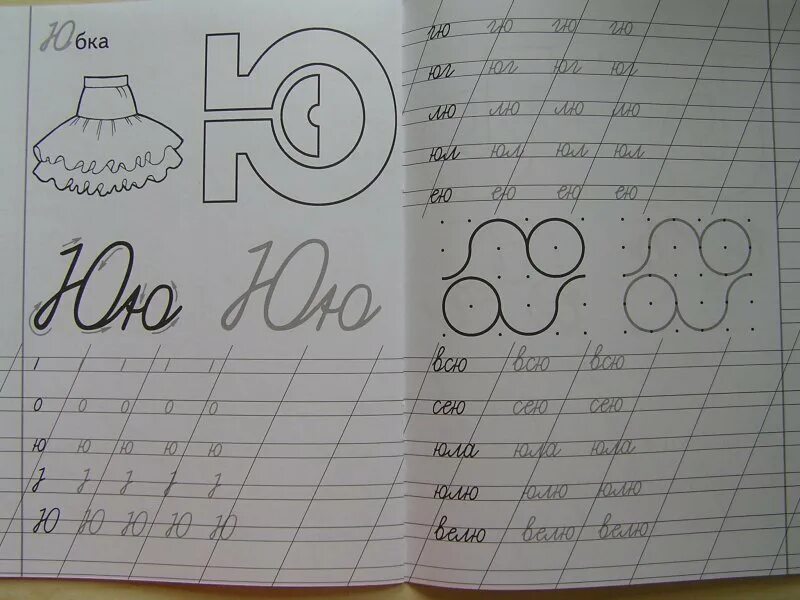 Юбка
Ю
Юю Юю
ı ı ı ı ı
о о о о о
ю ю ю ю ю
Ю Ю Ю Ю Ю
гю гю гю гю
юг юг юг юг
лю лю лю лю
юл юл юл юл
ею ею ею ею
всю всю всю
сею сею сею
юла юла юла
юлю юлю юлю
велю велю велю